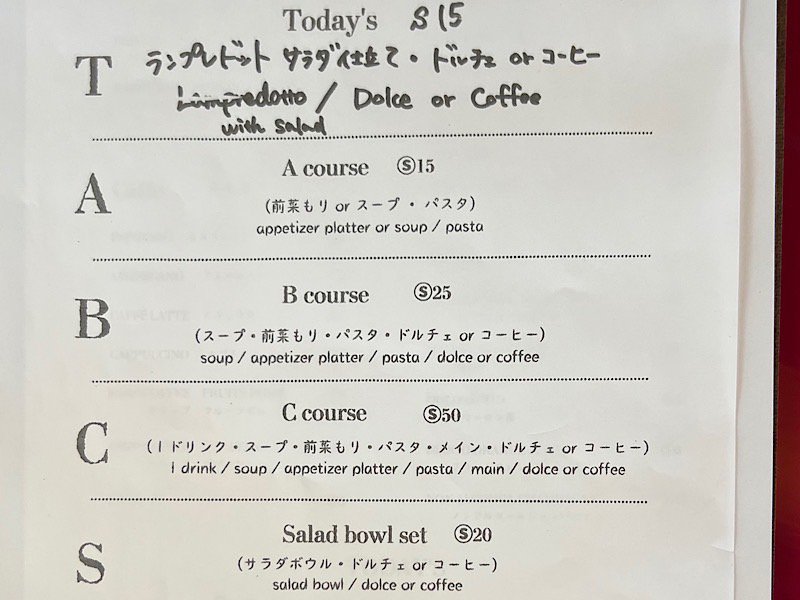 Today's S 15
T
ランプレドット サラダ仕立て・ドルチェ or コーヒー
Lampredotto / Dolce or Coffee
with salad
A course Ⓢ15
A
(前菜もり or スープ ・ パスタ)
appetizer platter or soup / pasta
B course Ⓢ25
B
(スープ・前菜もり・パスタ・ドルチェ or コーヒー)
soup / appetizer platter / pasta / dolce or coffee
C course Ⓢ50
C
(1ドリンク・スープ・前菜もり・パスタ・メイン・ドルチェ or コーヒー)
1 drink / soup / appetizer platter / pasta / main / dolce or coffee
Salad bowl set Ⓢ20
S
(サラダボウル・ドルチェ or コーヒー)
salad bowl / dolce or coffee